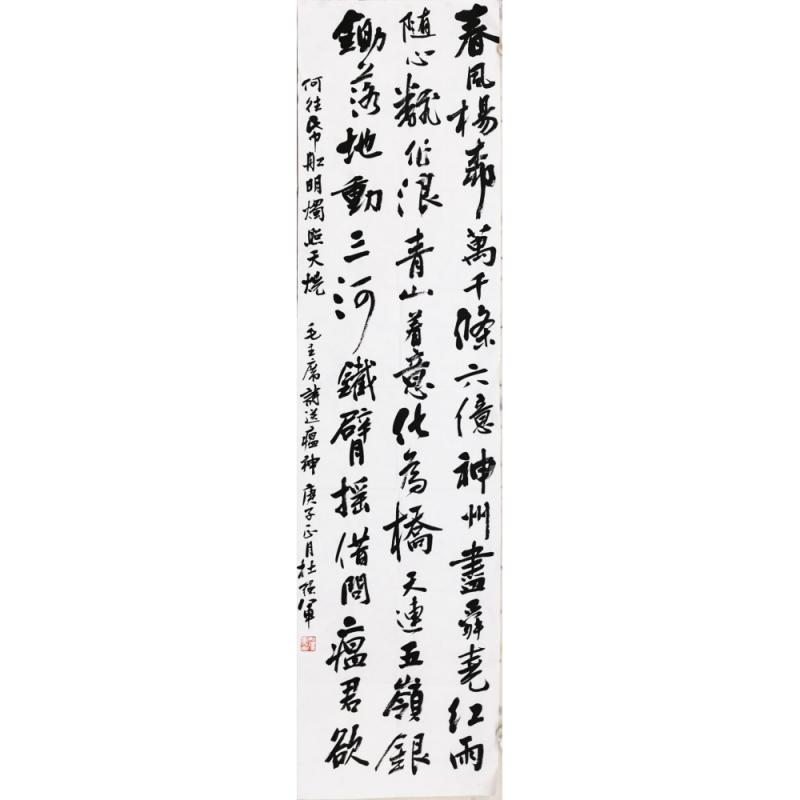 春风楊柳萬千條六億神州盡舜堯紅雨
随心翻作浪青山着意化為橋天連五嶺銀
鋤落地動三河鐵臂摇借問瘟君欲
何往帋船明燭照天燒 毛主席詩送瘟神 庚子正月杜强軍